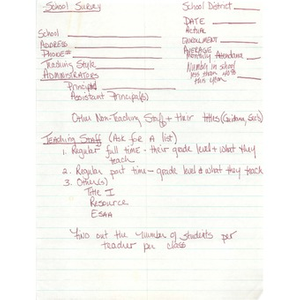 School Survey
School District
DATE
Actual
School
ENROLLMENT
ADDRESS
AVERAGE
PHONE#
Monthly Attendance
Teaching Style
Number in school
ADMINISTRATORS
less than
this year
Principal
Assistant Principal(s)
Other Non-Teaching Staff + their titles (Guidance, Sec's)
Teaching Staff (Ask for A list)
1. Regular full time - their grade level + what they
teach
2. Regular part time - grade level + what they teach
3. Other(s)
Title I
Resource
ESAA
Find out the number of students per
teacher per class